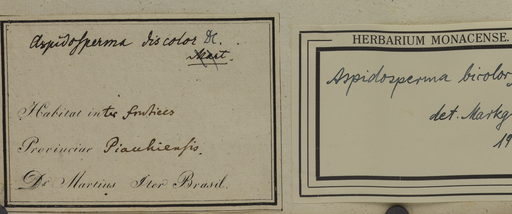 Aspidosperma discolor DC.
Mart.
Habitat inter frutices
Provinciae Piauhiensis.
Dr. Martius Iter Brasil.
HERBARIUM MONACENSE.
Aspidosperma bicolor
det. Markg
19